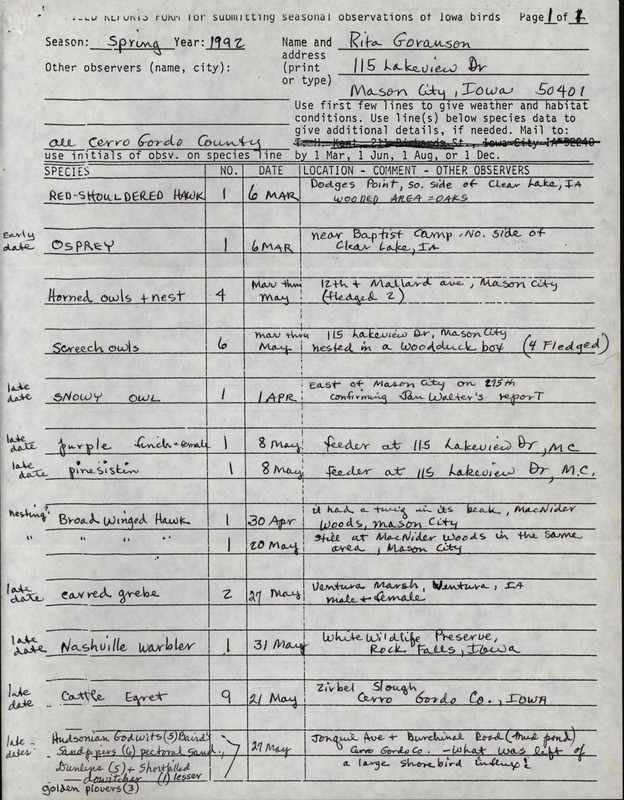 FIELD REPORTS FORM for submitting seasonal observations of Iowa birds Page 1 of 1
Season: Spring Year: 1992 Name and Rita Goranson
Other observers (name, city): address
(print 115 Lakeview Dr
or type)
Mason City, Iowa 50401
Use first few lines to give weather and habitat
conditions. Use line(s) below species data to
give additional details, if needed. Mail to:
all Cerro Gordo County T.H. Kent, 211 Richards St., Iowa City IA 52240
use initials of obsv. on species line by 1 Mar, 1 Jun, 1 Aug, or 1 Dec.
SPECIES NO. DATE LOCATION - COMMENT - OTHER OBSERVERS
RED-SHOULDERED HAWK 1 6 MAR Dodges Point, so. side of Clear Lake, IA
WOODED AREA = OAKS
Early date OSPREY 1 6 MAR near Baptist Camp. No. side of
Clear Lake, IA
Horned owls + nest 4 Mar thru May 12th + Mallard ave, Mason City
(fledged 2)
Screech owls 6 mar thru May 115 Lakeview Dr, Mason City
nested in a Woodduck box (4 Fledged)
late date SNOWY OWL 1 1 APR East of Mason City on 275th
confirming Jan Walter's report
late date purple finch = female 1 8 May feeder at 115 Lakeview Dr, MC
late date pinesiskin 1 8 May feeder at 115 Lakeview Dr, M.C.
nesting? Broad Winged Hawk 1 30 Apr it had a twig in its beak, MacNider
Woods, Mason City
" " " " 1 20 May still at MacNider Woods in the same
area, Mason City
late date earred grebe 2 27 May Ventura Marsh, Ventura, IA
male + female
late date Nashville warbler 1 31 May White Wildlife Preserve,
Rock Falls, Iowa
late date Cattle Egret 9 21 May Zirbel Slough
Cerro Gordo Co., IOWA
late dates Hudsonian Godwits (5) Baird's 27 May Jonquil Ave + Burchinal Road (mud pond)
Sandpipers (6) pectoral Sand., Cerro Gordo Co. - What was left of
Dunlins (5) + Shortbilled a large shorebird influx!
dowitcher (1) lesser
golden plovers (3)